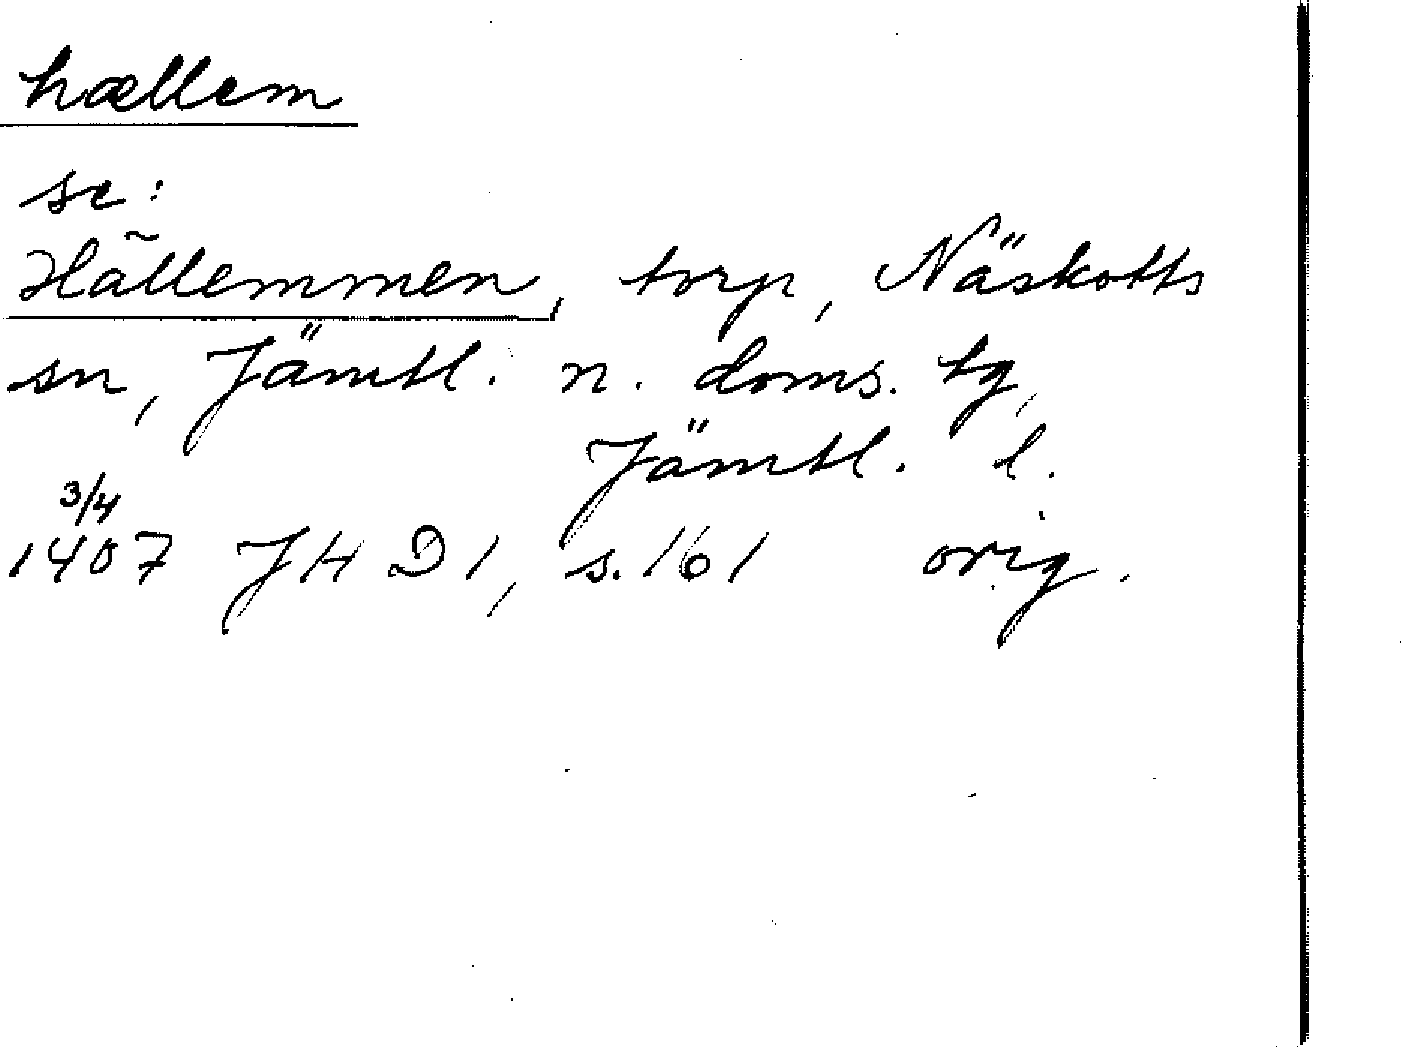 hællem
se:
Hällemmen, torp, Näskotts
sn, Jämtl. n. doms. tg,
Jämtl. l.
3/4
1407 JHD1, s. 161 orig.